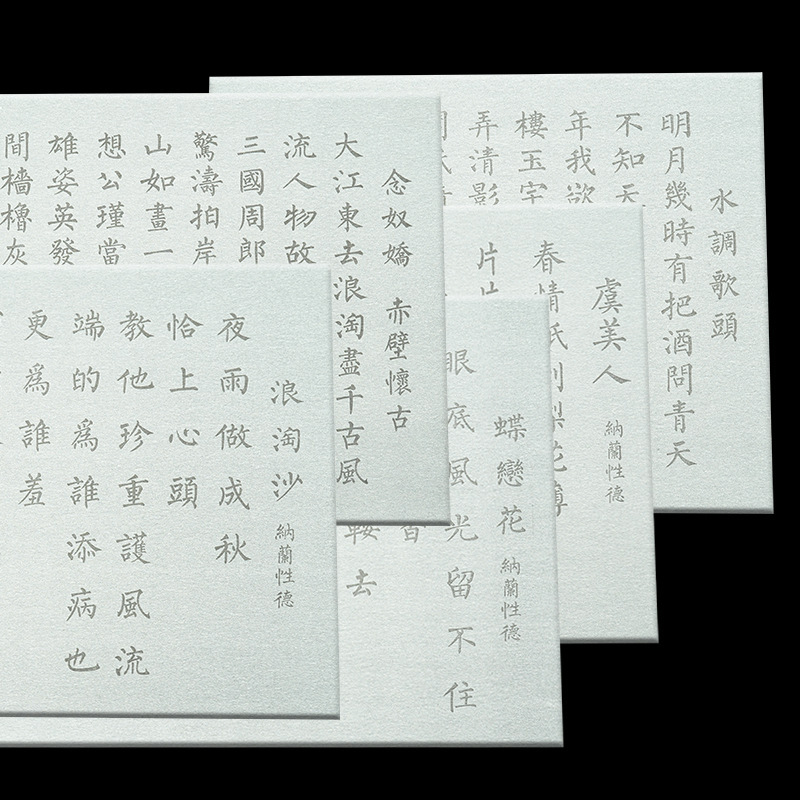 水調歌頭
明月幾時有把酒問青天
不知天
年我欲
樓玉宇
弄清影
念奴嬌 赤壁懷古
大江東去浪淘盡千古風
流人物故
三國周郎
驚濤拍岸
山如畫一
想公瑾當
雄姿英發
間檣櫓灰
虞美人 納蘭性德
春情祇到梨花薄
片片
蝶戀花 納蘭性德
眼底風光留不住
香
鞍去
浪淘沙 納蘭性德
夜雨做成秋
恰上心頭
教他珍重護風流
端的爲誰添病也
更爲誰羞